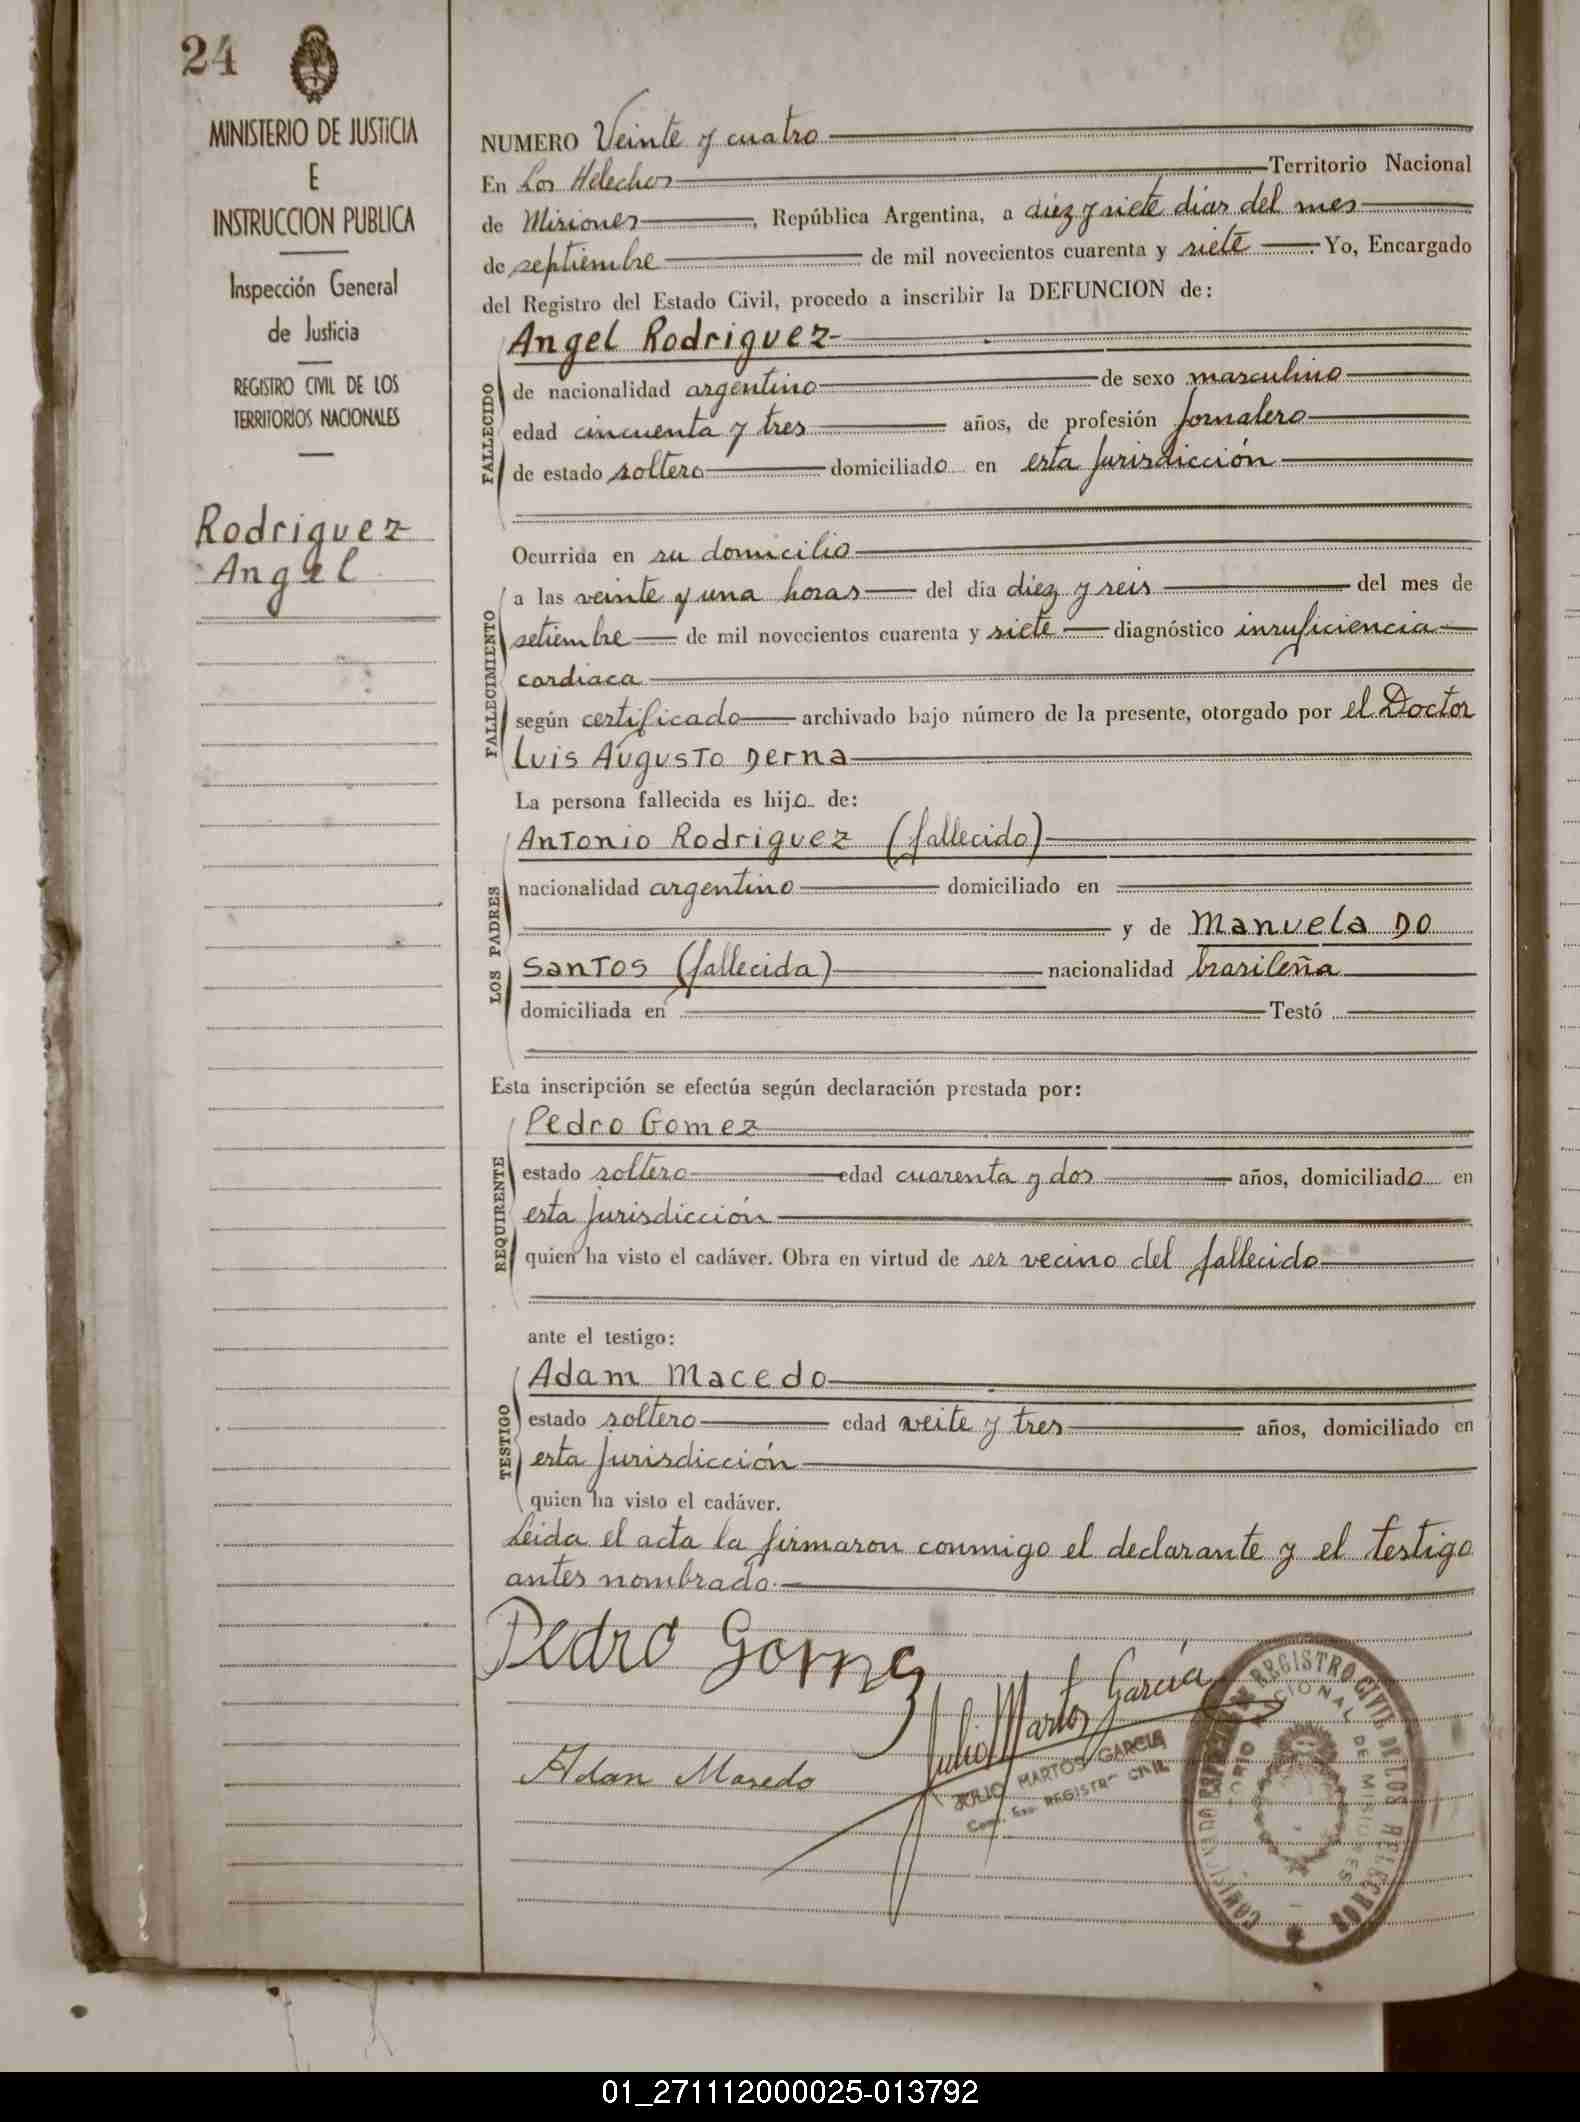 24
MINISTERIO DE JUSTICIA
E
INSTRUCCION PUBLICA
Inspección General
de Justicia
REGISTRO CIVIL DE LOS
TERRITORIOS NACIONALES
Rodriguez
Angel
NUMERO Veinte y cuatro
En Los Helechos Territorio Nacional
de Misiones, República Argentina, a diez y siete dias del mes
de septiembre de mil novecientos cuarenta y siete. Yo, Encargado
del Registro del Estado Civil, procedo a inscribir la DEFUNCION de:
Angel Rodriguez
FALLECIDO
de nacionalidad argentino de sexo masculino
edad cincuenta y tres años, de profesión jornalero
de estado soltero domiciliado en esta jurisdicción
Ocurrida en su domicilio
FALLECIMIENTO
a las veinte y una horas del día diez y seis del mes de
setiembre de mil novecientos cuarenta y siete diagnóstico insuficiencia
cardiaca
según certificado archivado bajo número de la presente, otorgado por el Doctor
Luis Augusto Derna
La persona fallecida es hijo de:
LOS PADRES
Antonio Rodriguez (fallecido)
nacionalidad argentino domiciliado en
y de Manuela Do
Santos (fallecida) nacionalidad brasileña
domiciliada en Testó
Esta inscripción se efectúa según declaración prestada por:
REQUIRENTE
Pedro Gomez
estado soltero edad cuarenta y dos años, domiciliado en
esta jurisdicción
quien ha visto el cadáver. Obra en virtud de ser vecino del fallecido
ante el testigo:
TESTIGO
Adam Macedo
estado soltero edad veite y tres años, domiciliado en
esta jurisdicción
quien ha visto el cadáver.
Leida el acta la firmaron conmigo el declarante y el testigo
antes nombrado.
Pedro Gomez
Julio Martos García
Adan Masedo
JULIO MARTOS GARCIA
REGISTRO CIVIL
REGISTRO CIVIL DE LOS HELECHOS
NACIONAL DE MISIONES
01_271112000025-013792